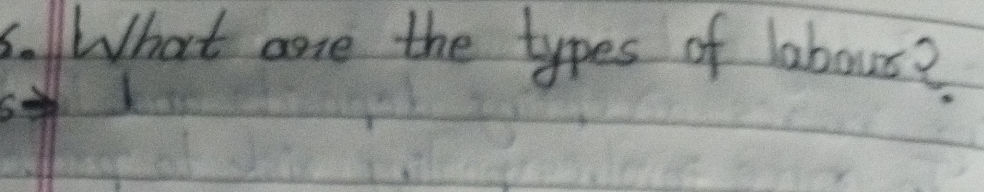 5. What are the types of labour?
5→ 1